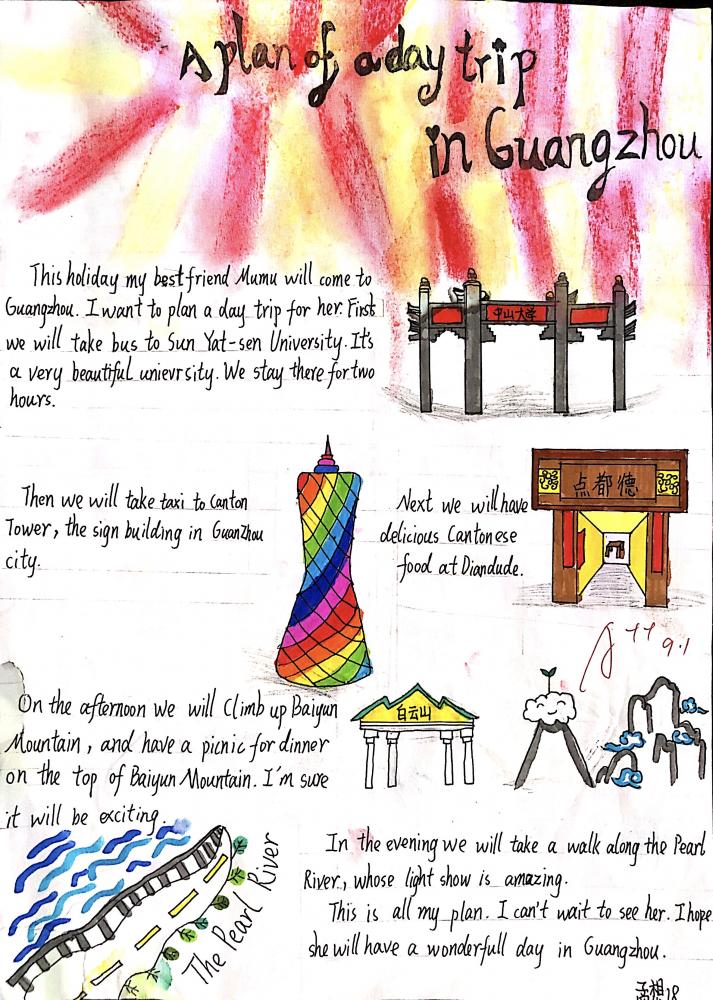 A plan of a day trip
in Guangzhou
This holiday my best friend Mumu will come to
Guangzhou. I want to plan a day trip for her. First
we will take bus to Sun Yat-sen University. It's
a very beautiful unievrsity. We stay there for two
hours.
中山大学
Then we will take taxi to Canton
Tower, the sign building in Guanzhou
city.
Next we will have
delicious Cantonese
food at Diandude.
点都德
A++ 9.1
On the afternoon we will Climb up Baiyun
Mountain, and have a picnic for dinner
on the top of Baiyun Mountain. I'm sure
it will be exciting.
白云山
The Pearl River
In the evening we will take a walk along the Pearl
River, whose light show is amazing.
This is all my plan. I can't wait to see her. I hope
she will have a wonderfull day in Guangzhou.
18